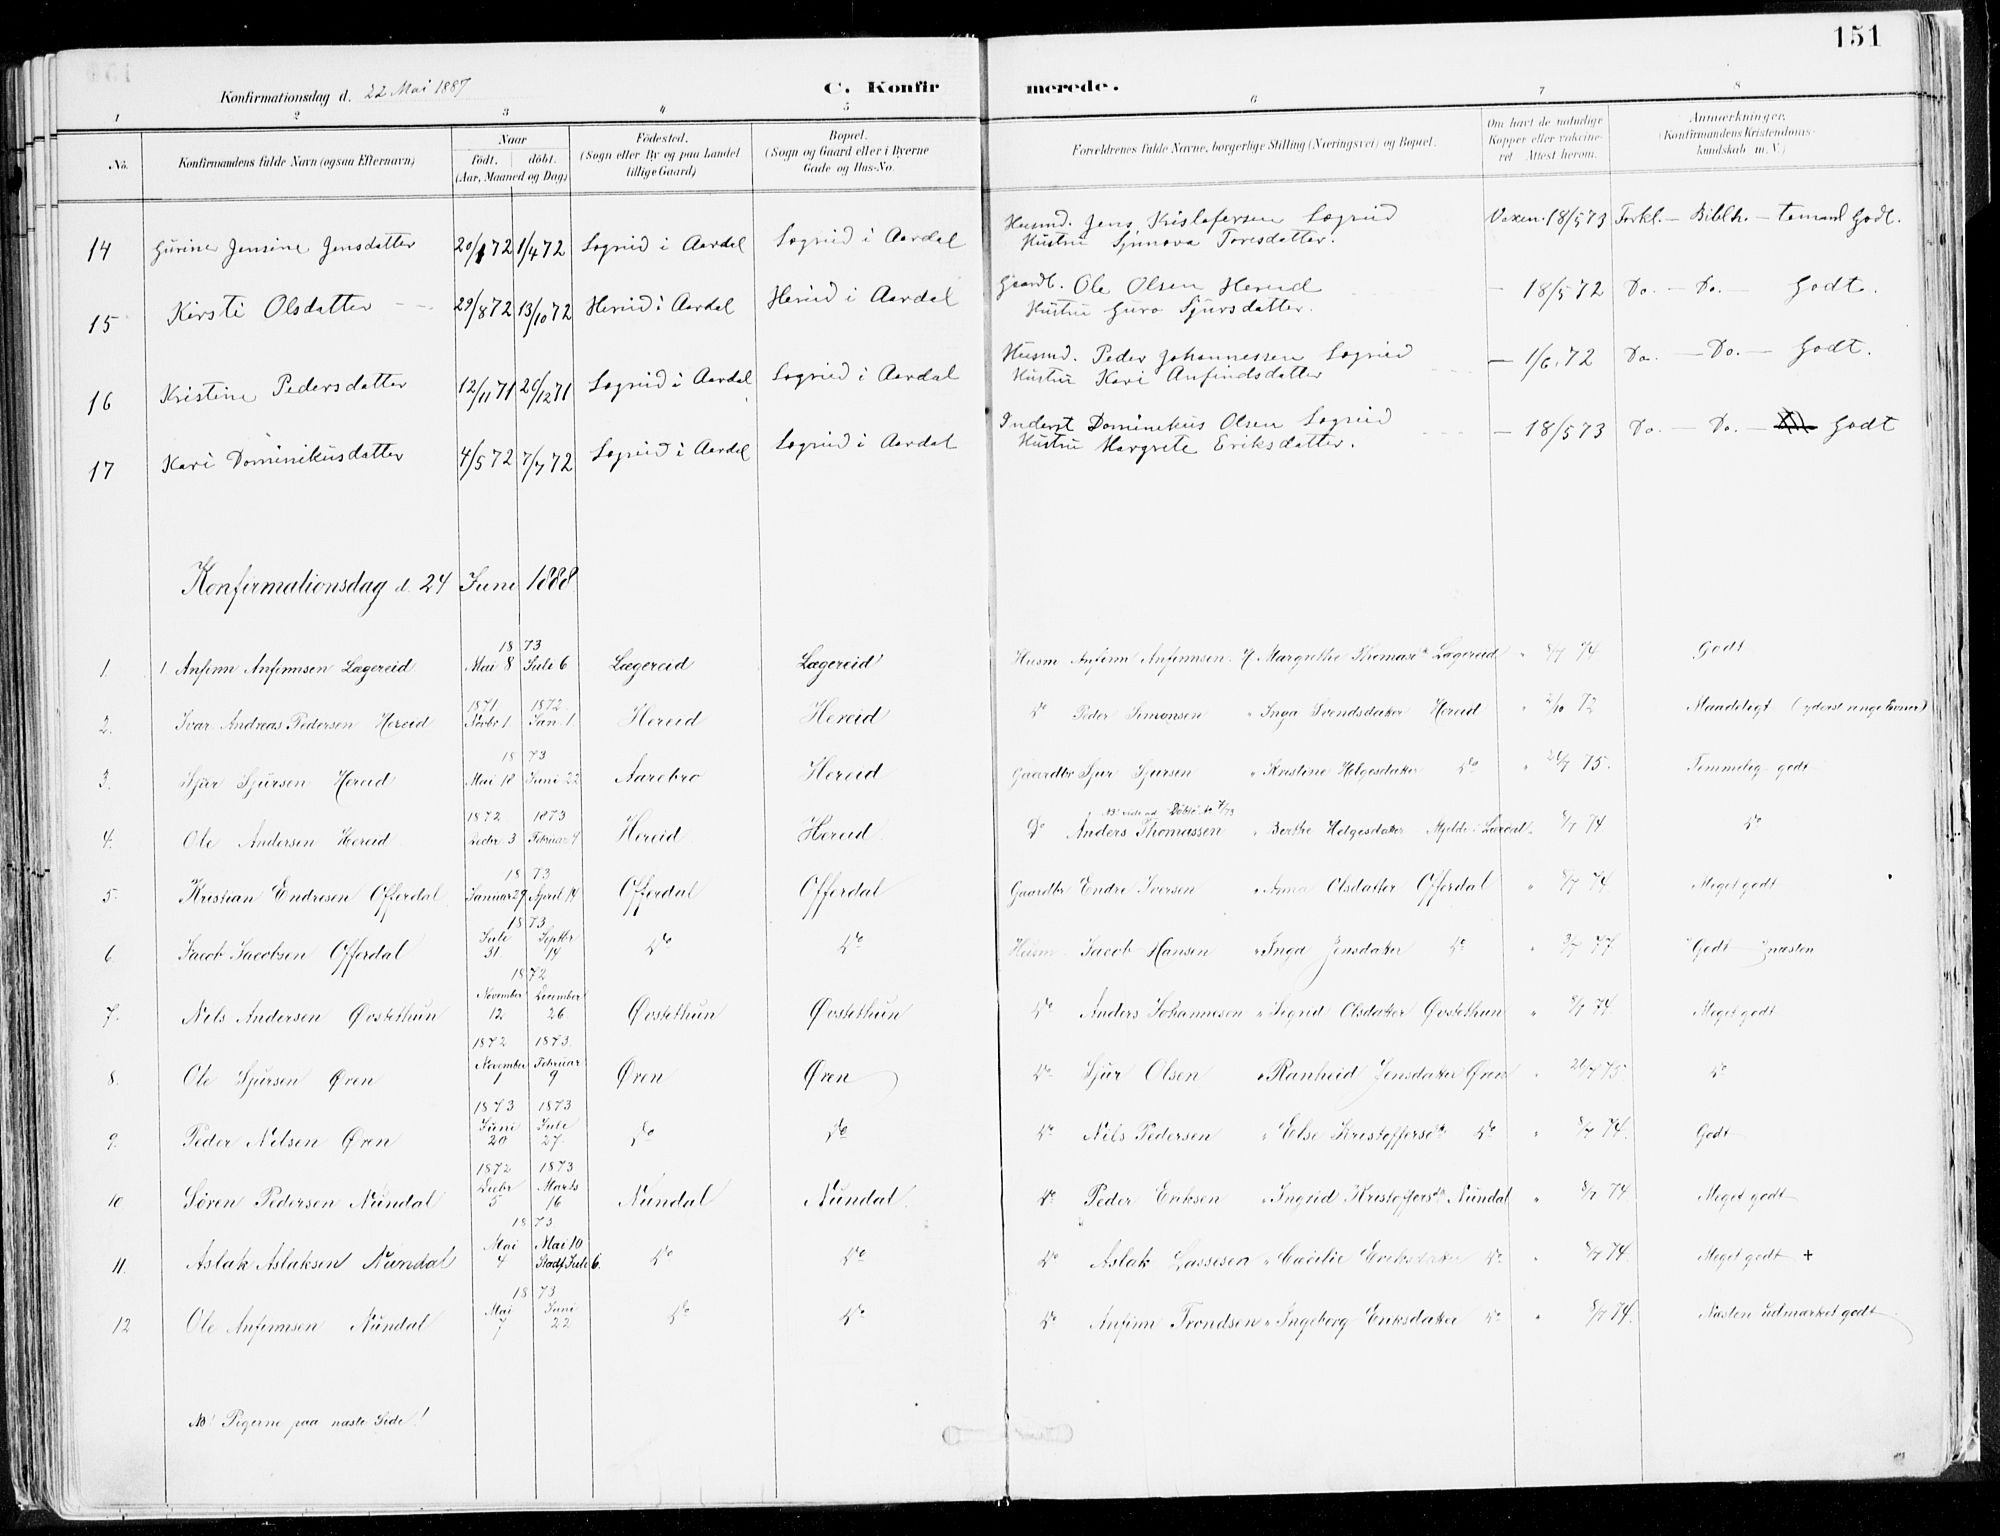 151
Konfirmationsdag d. 22 Mai 1887 C. Konfirmerede.
1 2 3 4 5 6 7 8
No. Konfirmandens fulde Navn (ogsaa Efternavn) Naar født. døbt. (Aar, Maaned og Dag) Fødested. (Sogn eller By og paa Landet tillige Gaard) Bopæl. (Sogn og Gaard eller i Byerne Gade og Hus-No. Forældrenes fulde Navne, borgerlige Stilling (Næringsvei) og Bopæl. Om havt de naturlige Kopper eller vakcineret. Attest herom. Anmærkninger. (Konfirmandens Kristendomskundskab m. V.)
14 Gurine Jensine Jensdatter 20/1 72 1/4 72 Lægrid i Aardal Lægrid i Aardal Husmd. Jens Kristofersen Lægrid Vaxen. 18/5 73 Forkl. – Biblh. – temmel Godt.
Hustru Synnova Toresdatter.
15 Kirsti Olsdatter 29/8 72 13/10 72 Hereid i Aardal Hereid i Aardal Gaardb. Ole Olsen Hereid – 18/5 72 Do. – Do. – Godt.
Hustru Guro Sjursdatter.
16 Kristine Pedersdatter 12/11 71 26/12 71 Lægrid i Aardal Lægrid i Aardal Husmd. Peder Johannessen Lægrid – 1/6. 72 Do. – Do. – Godt.
Hustru Kari Anfindsdatter
17 Kari Dominikusdatter 4/5 72 7/7 72 Lægrid i Aardal Lægrid i Aardal Inderst Dominikus Olsen Lægrid – 18/5 73 Do. – Do. – Godt
Hustru Margrete Eriksdatter.
Konfirmationsdag d. 24 Juni 1888
1873
1. 1 Anfinn Anfinnsen Lægereid Mai 8 Juli 6 Lægereid Lægereid Husm Anfinn Anfinnsen Margrethe Thomasdr Lægereid " 8/7 74 Godt
1871 1872
2. Ivar Andreas Pedersen Hereid Novbr 1 Jan. 1 Hereid Hereid Do Peder Simonsen " Inga Svendsdatter Hereid " 2/10 72 Maadeligt (yderst ringe Evner)
1873
3. Sjur Sjursen Hereid Mai 18 Juni 22 Aarebro Hereid Gaardbr Sjur Sjursen " Kristine Helgesdatter Do " 26/7 75. Temmelig godt
1872 1873
4. Ole Andersen Hereid Decbr 3 Februar 4 Hereid Hereid Do Anders Thomassen " Berthe Helgesdatter Mjelde i Lærdal " 8/7 74 Do
1873
5. Kristian Endresen Offerdal Januar 29 April 14 Offerdal Offerdal Gaardbr Endre Iversen " Anna Olsdatter Offerdal " 8/7 74. Meget godt
1873
6. Jacob Jacobsen Offerdal Juli 31 Septbr 14 Do Do Husm Jacob Hansen " Inga Jensdatter Do " 3/7 77 Godt næsten
1872
7. Nils Andersen Øvstethun November 12 December 26 Øvstethun Øvstethun Do Anders Johannesen " Sigrid Olsdatter Øvstethun " 8/7 74. Meget godt
1872 1873.
8. Ole Sjursen Øren November 1 Februar 9 Øren Øren Do Sjur Olsen " Ranheid Jensdatter Øren " 26/7 75 Do
1873 1873
9. Peder Nilsen Øren Juni 20 Juli 27. Do Do Do Nils Pedersen " Else Kristoffersdr Do " 8/7 74. Godt
1872 1873
10 Søren Pedersen Nundal Decbr 5 Marts 16 Nundal Nundal. Do Peder Eriksen " Ingrid Kristoffersdr Nundal " 8/7 74 Meget godt
1873
11. Aslak Aslaksen Nundal Mai 4 Mai 10 Stadf. Juli 6. Do Do Do Aslak Lassesen " Cecilie Eriksdatter Do " 8/7 74. Meget godt +
1873
12 Ole Anfinnsen Nundal Mai 7 Juni 22 Do Do Do Anfinn Trondsen " Ingeborg Eriksdatter Do " 8/7 74. Næsten udmærket godt
NB! Pigerne paa næste Side!